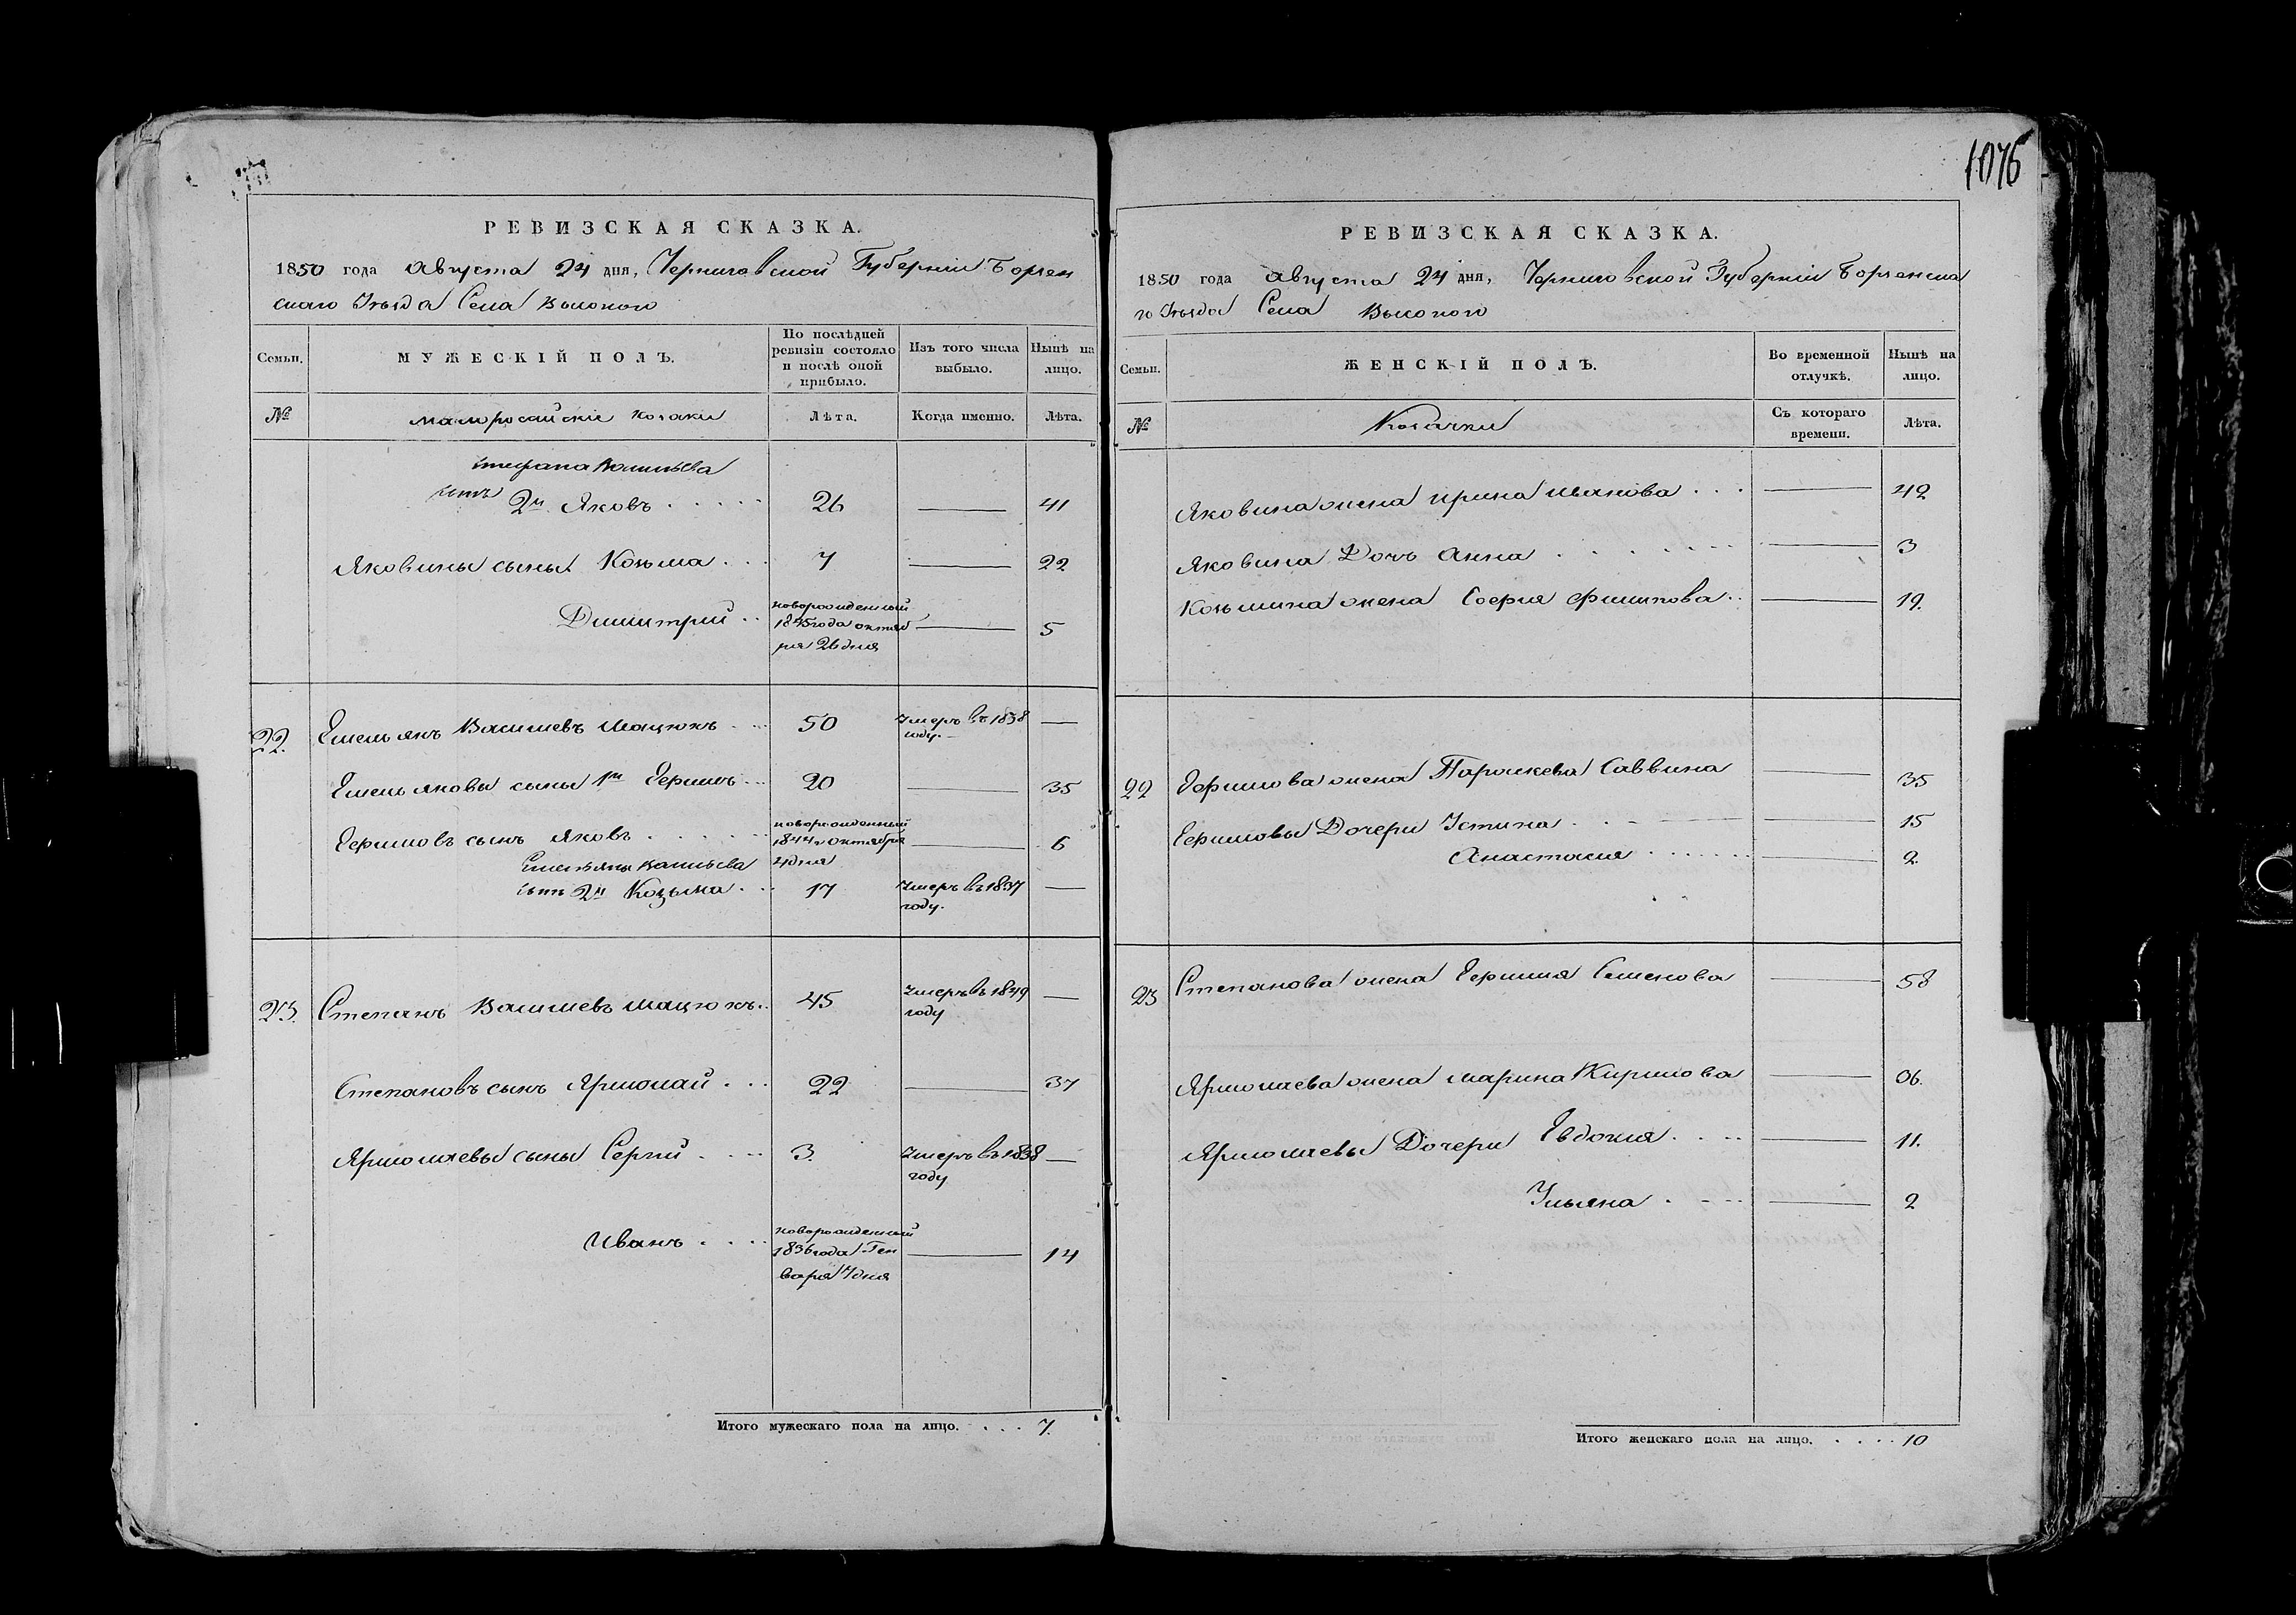 1076
РЕВИЗСКАЯ СКАЗКА.
1850 года Августа 24 дня, Черниговской Губерніи Борзен
скаго Уѣзда Села Высокого
Семьи.
МУЖЕСКІЙ ПОЛЪ.
По послѣдней ревизіи состояло и послѣ оной прибыло.
Изъ того числа выбыло.
Нынѣ на лицо.
№
малоросайскіе козаки
Лѣта.
Когда именно.
Лѣта.
сынъ 2й Яковъ 26 — 41
Яковины сыны Козьма 7 — 22
Димитрий новорожденный 1845 года октяб ря 26 дня — 5
22. Емельянъ Васильевъ Мацюкъ 50 умеръ въ 1838 году. —
Емельяновы сыны 1й Ефимъ 20 — 35
Ефимовъ сынъ Яковъ новорожденный 1844 г октября 4 дня — 6
Емельяна Васильева
сынъ 2й Козьма 17 умеръ въ 1837 году. —
23. Степанъ Васильевъ Мацюкъ 45 умеръ въ 1849 году —
Степановъ сынъ Ярмолай 22 — 37
Ярмолаевы сыны Сергий 3. умеръ въ 1838 году —
Иванъ новорожденный 1836 года Ген варя 7 дня — 14
Итого мужескаго пола на лицо. 7.
РЕВИЗСКАЯ СКАЗКА.
1850 года Августа 24 дня, Черниговской Губерніи Борзенска
го Уѣзда Села Высокого
Семьи.
ЖЕНСКІЙ ПОЛЪ.
Во временной отлучкѣ.
Нынѣ на лицо.
№
Козачки
Съ котораго времени.
Лѣта.
Яковина жена Ирина Иванова — 42
Яковина Дочь Анна — 3
Козьмина жена София Филипова — 19.
22 Ефимова жена Параскева Саввина — 35
Ефимовы Дочери Устина — 15
Анастасия — 2
23 Степанова жена Ефимия Семенова — 58
Ярмолаева жена Марина Кирилова — 36.
Ярмолаевы Дочери Евдокия — 11.
Ульяна — 2
Итого женскаго пола на лицо. 10